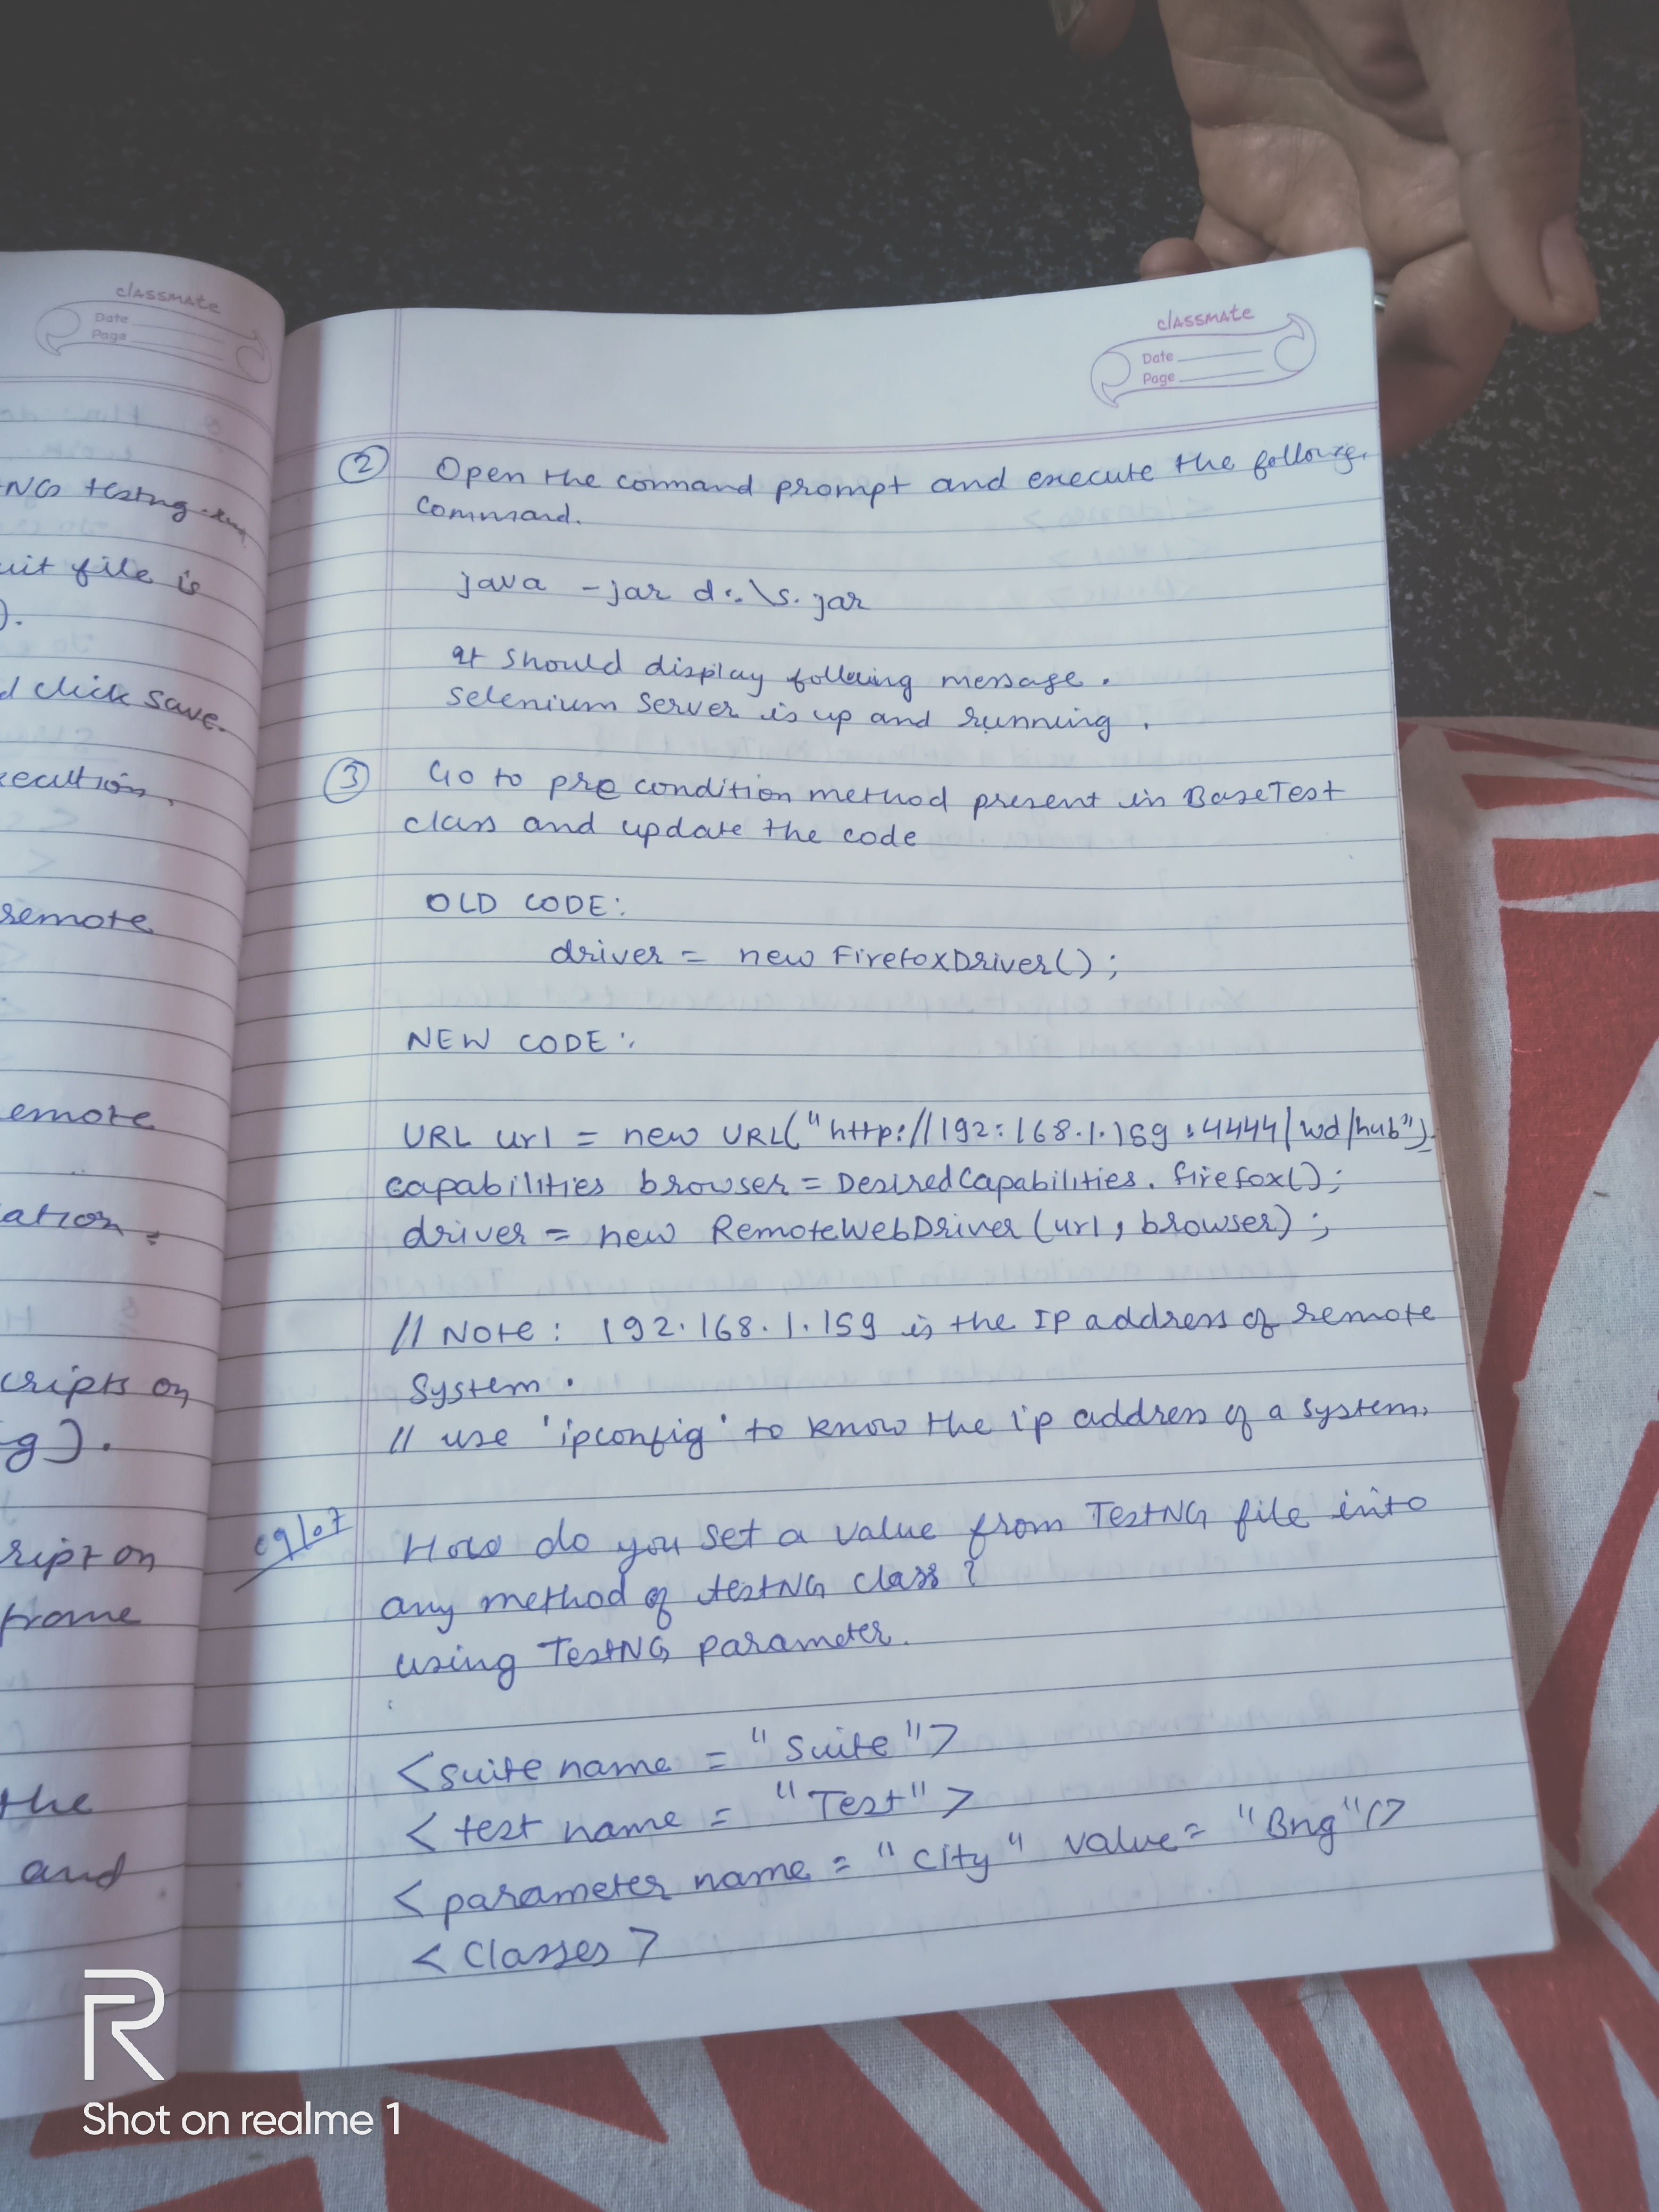 classmate
Date
Page
NG testng
uit file is
).
d click save.
ecution.
remote
emote
ation.
cripts on
g).
ript on
frame
the
and
classmate
Date
Page
② Open the command prompt and execute the
command.
java -jar d:\s.jar
It should display following message.
Selenium Server is up and running.
③ Go to pre condition method present in BaseTest
class and update the code
OLD CODE:
driver = new FirefoxDriver();
NEW CODE:
URL url = new URL("http://192:168.1.159:4444/wd/hub");
capabilities browser = DesiredCapabilities.firefox();
driver = new RemoteWebDriver(url, browser);
// Note: 192.168.1.159 is the IP address of remote
System.
// use 'ipconfig' to know the ip address of a system.
09/07 How do you set a value from TestNG file into
any method of testNG class?
using TestNG parameter.
<suite name = "Suite">
<test name = "Test">
<parameter name = "city" value = "Bng"/>
<Classes>
R
Shot on realme 1